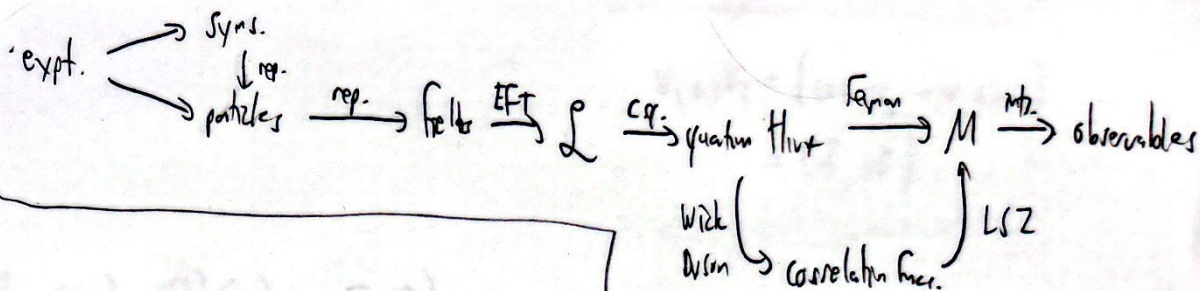 expt.
syms.
rep.
particles
rep.
fields
EFT
L
c.q.
quantum Hint
Feynman
M
intz.
observables
Wick
Dyson
correlation func.
LSZ